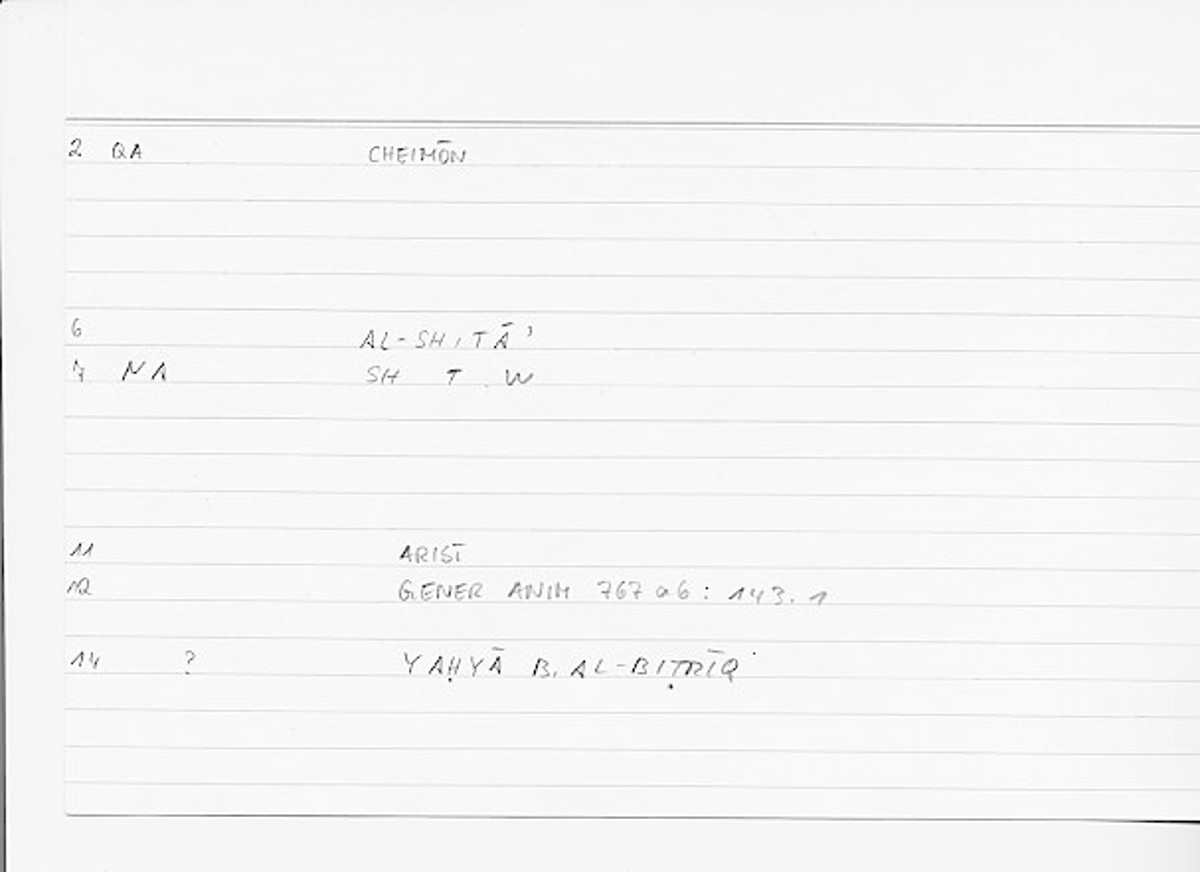 2 QA CHEIMŌN
6 AL-SHITĀʾ
7 NA SH T W
11 ARIST
12 GENER ANIM 767 a 6 : 143.1
14 ? YAḤYĀ B. AL-BIṬRĪQ